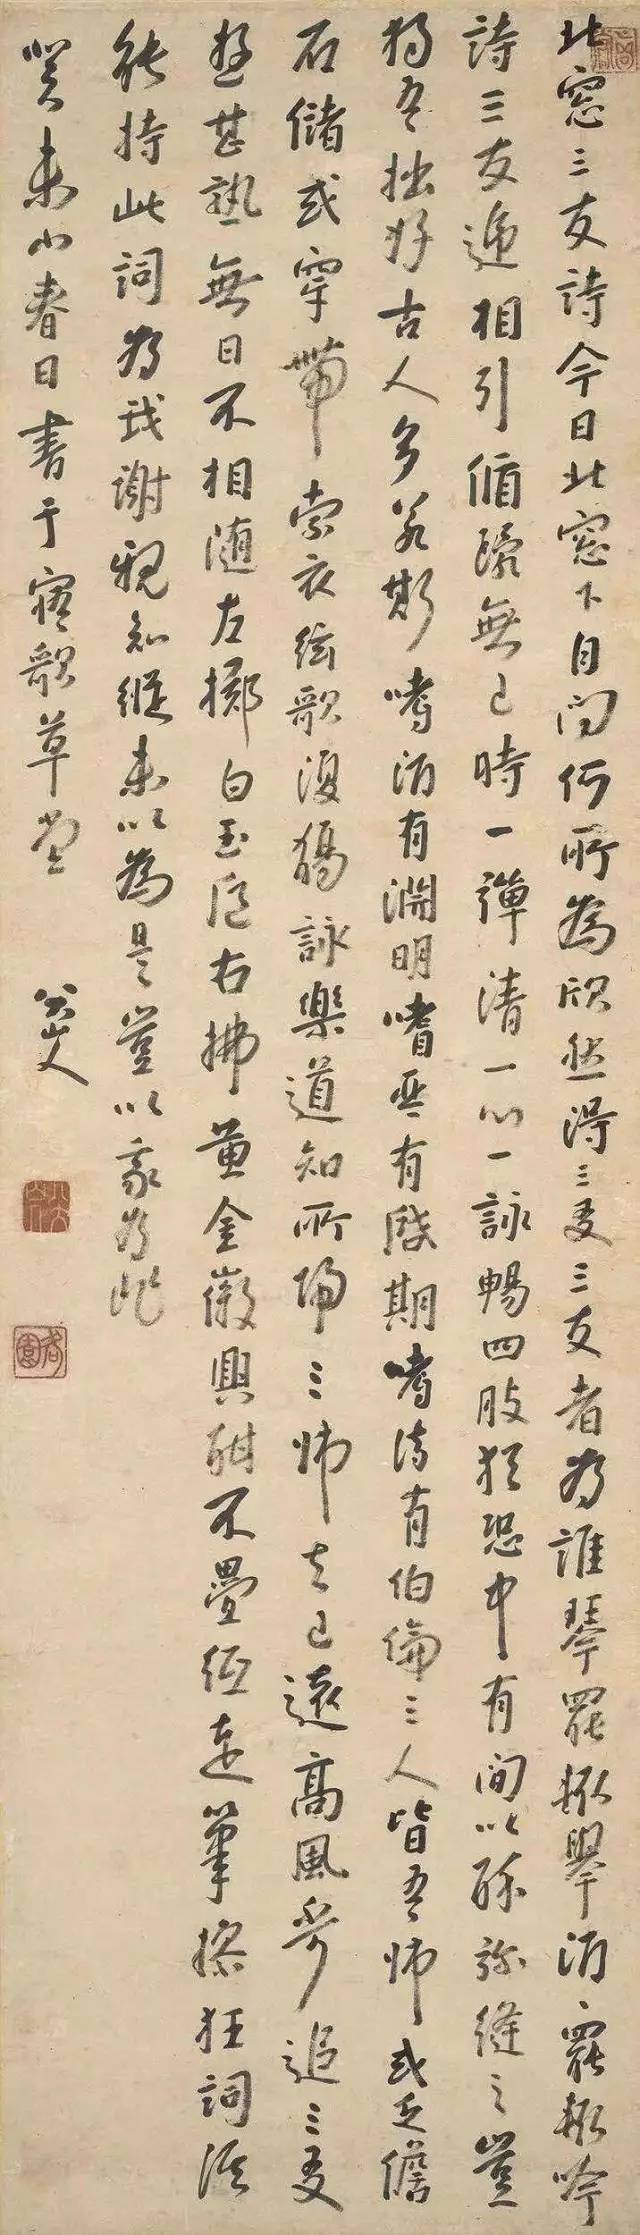 北窓三友詩今日北窓下自问何所為欣然得三友三友者为誰琴罷輒舉酒酒罷輒吟
詩三友递相引循環無已時一彈清一心一詠暢四肢猶恐中有间以酔弥縫之豈
独吾拙好古人多若斯嗜酒有淵明嗜琴有啟期嗜诗有伯倫三人皆吾师或乏儋
石儲或穿帶索衣絃歌復觴詠樂道知所归三师去已遠高風不可追三友
遊甚熟無日不相随左擲白玉卮右拂黄金徽興酣不疊纸走筆操狂詞谁
能持此詞为我谢親知縱未以為是豈以我为非
癸未小春日書于寤歌草堂
八大山人